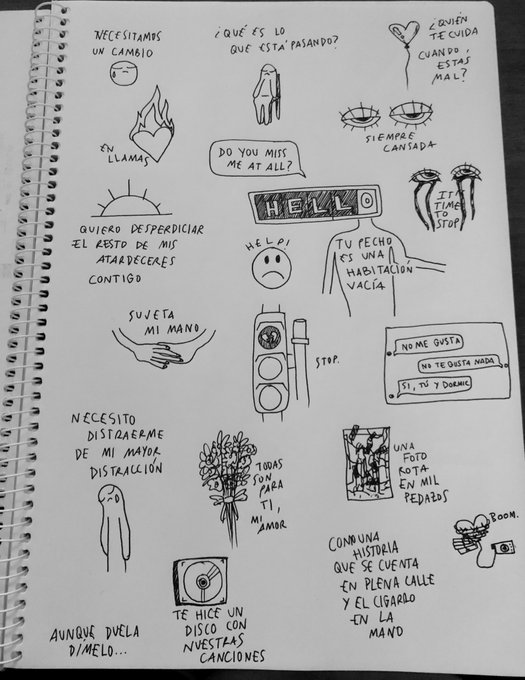 NECESITAMOS
UN CAMBIO
¿QUÉ ES LO
QUE ESTÁ PASANDO?
¿QUIÉN
TE CUIDA
CUANDO
ESTÁS
MAL?
EN
LLAMAS
SIEMPRE
CANSADA
DO YOU MISS
ME AT ALL?
HELLO
IT'S
TIME
TO
STOP
QUIERO DESPERDICIAR
EL RESTO DE MIS
ATARDECERES
CONTIGO
HELP!
TU PECHO
ES UNA
HABITACIÓN
VACÍA
SUJETA
MI MANO
STOP.
NO ME GUSTA
NO TE GUSTA NADA
SI, TÚ Y DORMIR
NECESITO
DISTRAERME
DE MI MAYOR
DISTRACCIÓN
TODAS
SON
PARA
TI,
MI
AMOR
UNA
FOTO
ROTA
EN MIL
PEDAZOS
BOOM.
COMO UNA
HISTORIA
QUE SE CUENTA
EN PLENA CALLE
Y EL CIGARRO
EN LA
MANO
TE HICE UN
DISCO CON
NUESTRAS
CANCIONES
AUNQUE DUELA
DÍMELO...